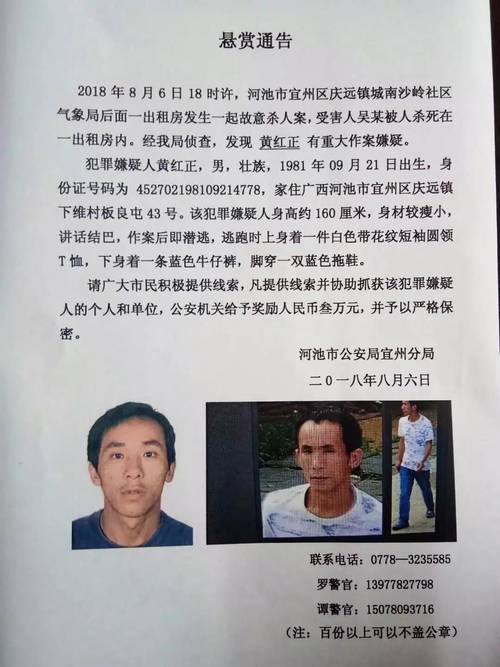 悬赏通告
2018 年 8 月 6 日 18 时许，河池市宜州区庆远镇城南沙岭社区
气象局后面一出租房发生一起故意杀人案，受害人吴某被人杀死在
一出租房内。经我局侦查，发现 黄红正 有重大作案嫌疑。
犯罪嫌疑人黄红正，男，壮族，1981 年 09 月 21 日出生，身
份证号码为 452702198109214778，家住广西河池市宜州区庆远镇
下维村板良屯 43 号。该犯罪嫌疑人身高约 160 厘米，身材较瘦小，
讲话结巴，作案后即潜逃，逃跑时上身着一件白色带花纹短袖圆领
T 恤，下身着一条蓝色牛仔裤，脚穿一双蓝色拖鞋。
请广大市民积极提供线索，凡提供线索并协助抓获该犯罪嫌疑
人的个人和单位，公安机关给予奖励人民币叁万元，并予以严格保
密。
河池市公安局宜州分局
二０一八年八月六日
联系电话：0778—3235585
罗警官：13977827798
谭警官：15078093716
（注：百份以上可以不盖公章）